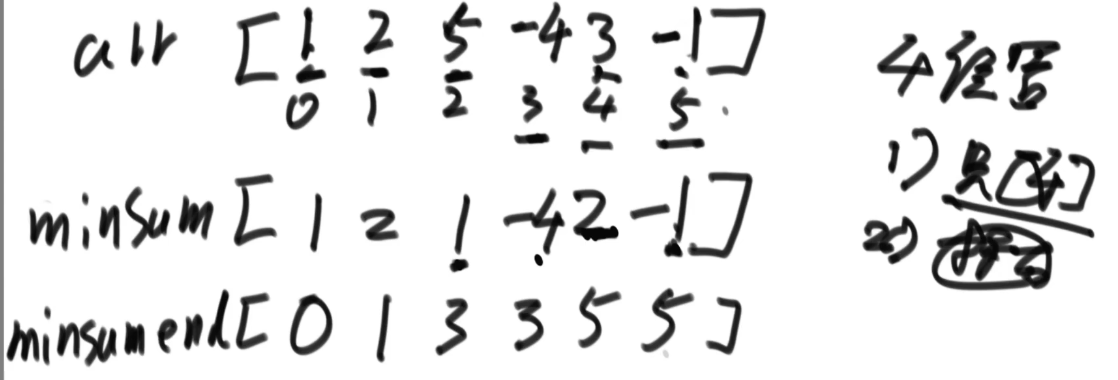 arr [1 2 5 -4 3 -1]
0 1 2 3 4 5
minsum [1 2 1 -4 2 -1]
minsumend [0 1 3 3 5 5]
4位置
1) 只[4]
2)